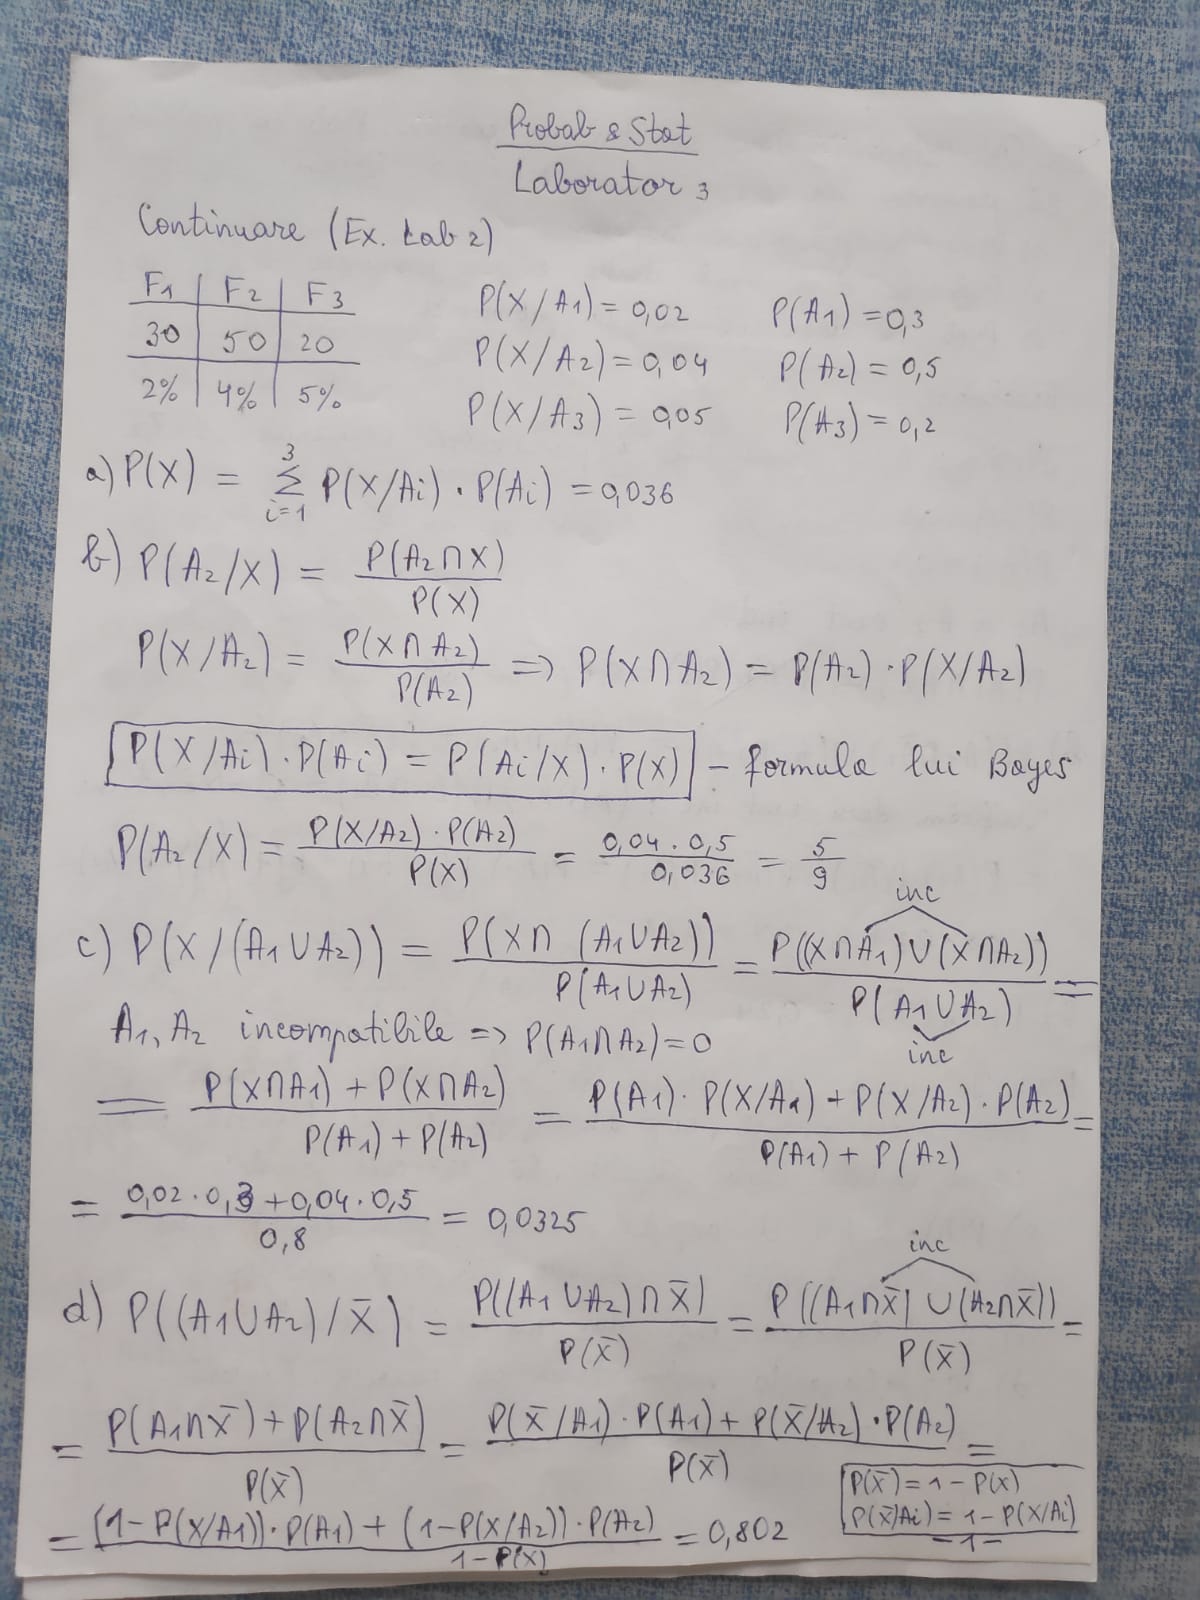 Probab & Stat
Laborator 3
Continuare (Ex. Lab 2)
F1 | F2 | F3
30 | 50 | 20
2% | 4% | 5%
P(X/A1) = 0,02 P(A1) = 0,3
P(X/A2) = 0,04 P(A2) = 0,5
P(X/A3) = 0,05 P(A3) = 0,2
a) P(X) = ∑_{i=1}^{3} P(X/Ai) · P(Ai) = 0,036
b) P(A2/X) = P(A2∩X) / P(X)
P(X/A2) = P(X∩A2) / P(A2) => P(X∩A2) = P(A2) · P(X/A2)
P(X/Ai) · P(Ai) = P(Ai/X) · P(X) - formula lui Bayes
P(A2/X) = P(X/A2) · P(A2) / P(X) = 0,04 · 0,5 / 0,036 = 5/9
inc
c) P(X/(A1∪A2)) = P(X∩(A1∪A2)) / P(A1∪A2) = P((X∩A1)∪(X∩A2)) / P(A1∪A2) =
inc
A1, A2 incompatibile => P(A1∩A2) = 0
= P(X∩A1) + P(X∩A2) / P(A1) + P(A2) = P(A1) · P(X/A1) + P(X/A2) · P(A2) / P(A1) + P(A2) =
= 0,02 · 0,3 + 0,04 · 0,5 / 0,8 = 0,0325
inc
d) P((A1∪A2)/X̄) = P((A1∪A2)∩X̄) / P(X̄) = P((A1∩X̄)∪(A2∩X̄)) / P(X̄) =
= P(A1∩X̄) + P(A2∩X̄) / P(X̄) = P(X̄/A1) · P(A1) + P(X̄/A2) · P(A2) / P(X̄) =
P(X̄) = 1 - P(X)
P(X̄/Ai) = 1 - P(X/Ai)
= (1-P(X/A1)) · P(A1) + (1-P(X/A2)) · P(A2) / 1-P(X) = 0,802
-1-